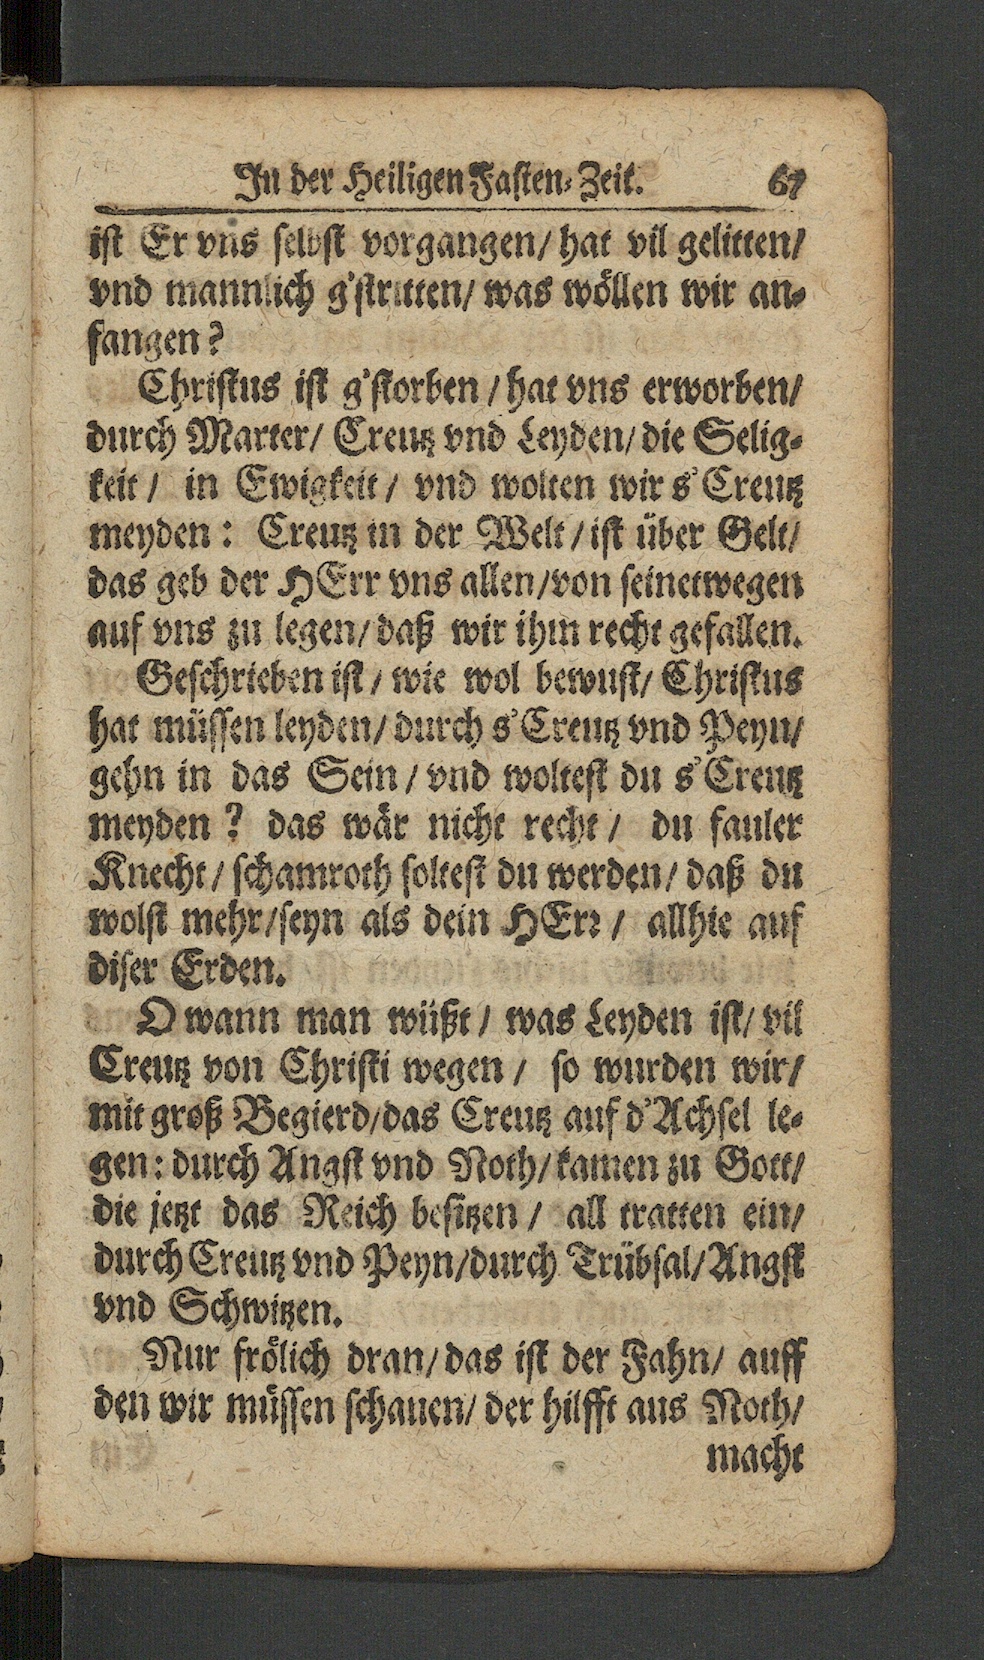 In der Heiligen Fasten-Zeit. 67
ist Er vns selbst vorgangen/ hat vil gelitten/
vnd mannlich g'stritten/ was wöllen wir an-
fangen?
Christus ist g'storben / hat vns erworben/
durch Marter/ Creutz vnd Leyden/ die Selig-
keit / in Ewigkeit / vnd wolten wir s'Creutz
meyden: Creutz in der Welt / ist über Gelt/
das geb der HErr vns allen/von seinetwegen
auf vns zu legen/ daß wir ihm recht gefallen.
Geschrieben ist / wie wol bewust/ Christus
hat müssen leyden/ durch s'Creutz vnd Peyn/
gehn in das Sein / vnd woltest du s'Creutz
meyden? das wär nicht recht / du fauler
Knecht/ schamroth soltest du werden/ daß du
wolst mehr/seyn als dein HErr / allhie auf
diser Erden.
O wann man wüßt / was Leyden ist/ vil
Creutz von Christi wegen / so wurden wir/
mit groß Begierd/das Creutz auf d'Achsel le-
gen: durch Angst vnd Noth/ kamen zu Gott/
die jetzt das Reich besitzen / all tratten ein/
durch Creutz vnd Peyn/durch Trübsal/ Angst
vnd Schwitzen.
Nur frölich dran/ das ist der Fahn/ auff
den wir müssen schauen/ der hilfft aus Noth/
macht